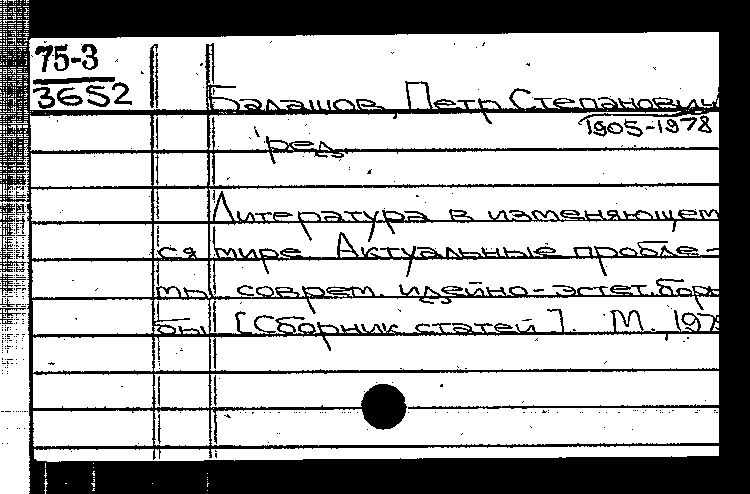 75-3
3652
Балашов, Петр Степанович
1905-1978
ред.
Литература в изменяющем
ся мире. Актуальные пробле-
мы соврем. идейно-эстет. борь
бы [Сборник статей]. М.,